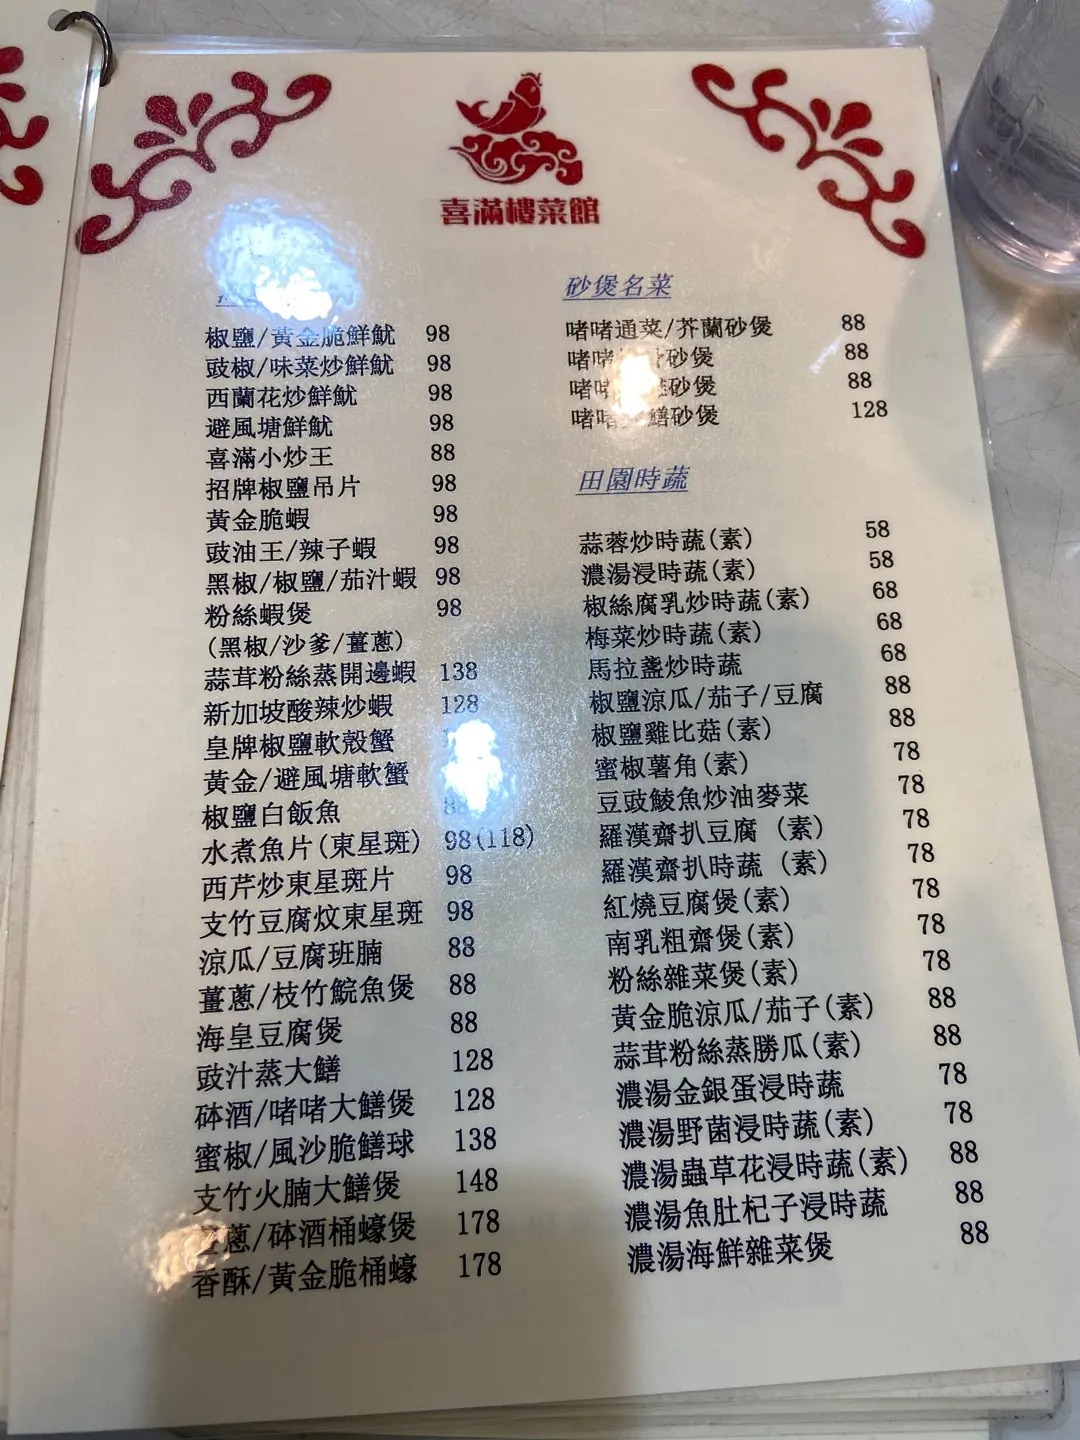 喜滿樓菜館
椒鹽/黃金脆鮮魷 98
豉椒/味菜炒鮮魷 98
西蘭花炒鮮魷 98
避風塘鮮魷 98
喜滿小炒王 88
招牌椒鹽吊片 98
黃金脆蝦 98
豉油王/辣子蝦 98
黑椒/椒鹽/茄汁蝦 98
粉絲蝦煲 98
(黑椒/沙爹/薑蔥)
蒜茸粉絲蒸開邊蝦 138
新加坡酸辣炒蝦 128
皇牌椒鹽軟殼蟹
黃金/避風塘軟蟹
椒鹽白飯魚 88
水煮魚片(東星斑) 98(118)
西芹炒東星斑片 98
支竹豆腐炆東星斑 98
涼瓜/豆腐班腩 88
薑蔥/枝竹鯇魚煲 88
海皇豆腐煲 88
豉汁蒸大鱔 128
砵酒/啫啫大鱔煲 128
蜜椒/風沙脆鱔球 138
支竹火腩大鱔煲 148
薑蔥/砵酒桶蠔煲 178
香酥/黃金脆桶蠔 178
砂煲名菜
啫啫通菜/芥蘭砂煲 88
啫啫 砂煲 88
啫啫 砂煲 88
啫啫 鱔砂煲 128
田園時蔬
蒜蓉炒時蔬(素) 58
濃湯浸時蔬(素) 58
椒絲腐乳炒時蔬(素) 68
梅菜炒時蔬(素) 68
馬拉盞炒時蔬 68
椒鹽涼瓜/茄子/豆腐 88
椒鹽雞比菇(素) 88
蜜椒薯角(素) 78
豆豉鯪魚炒油麥菜 78
羅漢齋扒豆腐 (素) 78
羅漢齋扒時蔬 (素) 78
紅燒豆腐煲(素) 78
南乳粗齋煲(素) 78
粉絲雜菜煲(素) 78
黃金脆涼瓜/茄子(素) 88
蒜茸粉絲蒸勝瓜(素) 88
濃湯金銀蛋浸時蔬 78
濃湯野菌浸時蔬(素) 78
濃湯蟲草花浸時蔬(素) 88
濃湯魚肚杞子浸時蔬 88
濃湯海鮮雜菜煲 88